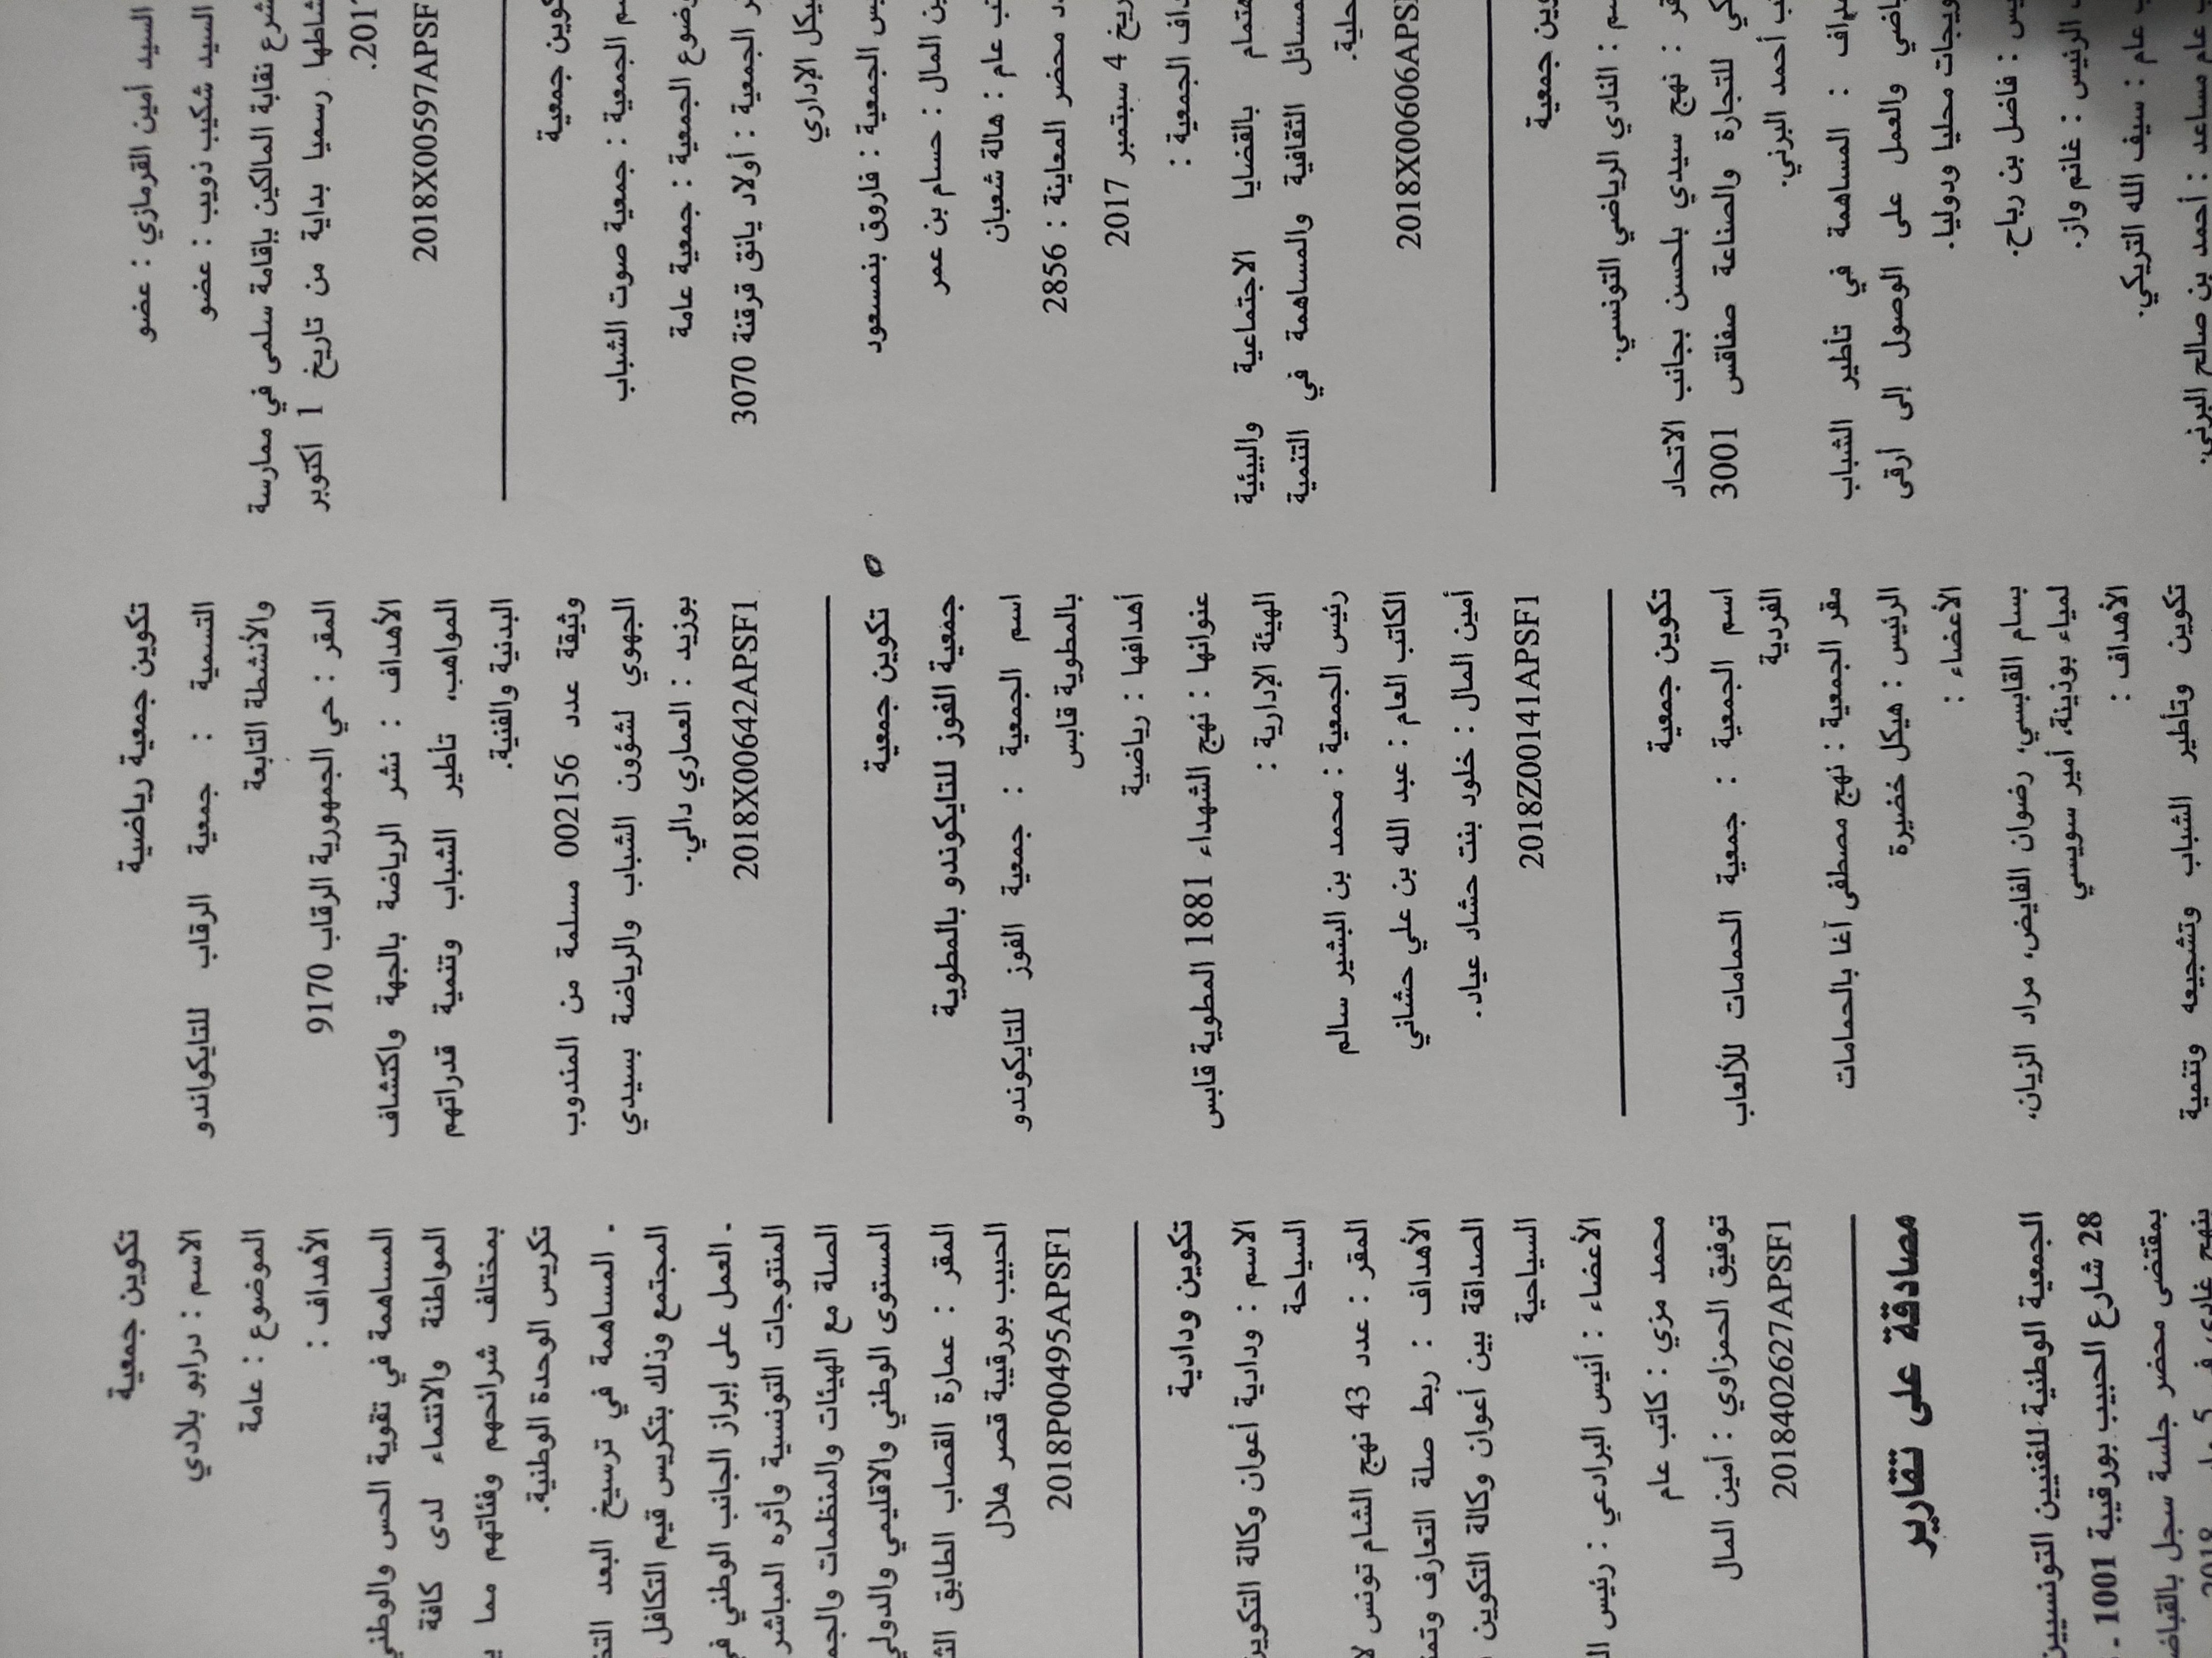 السيد أمين القرمازي : عضو
السيد شكيب ذويب : عضو
نقابة المالكين بإقامة سلمى في ممارسة
رسميا بداية من تاريخ 1 أكتوبر
2018X00597APSF
جمعية
الجمعية : جمعية صوت الشباب
الجمعية : جمعية عامة
الجمعية : أولاد يانق قرقنة 3070
الإداري
الجمعية : فاروق بنمسعود
المال : حسام بن عمر
عام : هالة شعبان
محضر المعاينة : 2856
4 سبتمبر 2017
الجمعية :
بالقضايا الاجتماعية والبيئية
الثقافية والمساهمة في التنمية
2018X00606APS
جمعية
: النادي الرياضي التونسي.
: نهج سيدي بلحسن بجانب الاتحاد
للتجارة والصناعة صفاقس 3001
أحمد البرني.
: المساهمة في تأطير الشباب
والعمل على الوصول إلى أرقى
محليا ودوليا.
: فاضل بن رباح.
الرئيس : غانم واز.
عام : سيف الله التريكي.
عام مساعد : أحمد بن صالح البرني.
تكوين جمعية رياضية
التسمية : جمعية الرقاب للتايكواندو
والأنشطة التابعة
المقر : حي الجمهورية الرقاب 9170
الأهداف : نشر الرياضة بالجهة واكتشاف
المواهب، تأطير الشباب وتنمية قدراتهم
البدنية والفنية.
وثيقة عدد 002156 مسلمة من المندوب
الجهوي لشؤون الشباب والرياضة بسيدي
بوزيد : العماري دالي.
2018X00642APSF1
تكوين جمعية
جمعية الفوز للتايكوندو بالمطوية
اسم الجمعية : جمعية الفوز للتايكوندو
بالمطوية قابس
أهدافها : رياضية
عنوانها : نهج الشهداء 1881 المطوية قابس
الهيئة الإدارية :
رئيس الجمعية : محمد بن البشير سالم
الكاتب العام : عبد الله بن علي حشاني
أمين المال : خلود بنت حشاد عياد.
2018Z00141APSF1
تكوين جمعية
اسم الجمعية : جمعية الحمامات للألعاب
الفردية
مقر الجمعية : نهج مصطفى آغا بالحمامات
الرئيس : هيكل خضيرة
الأعضاء :
بسام القابسي، رضوان الفايض، مراد الزيان،
لمياء بوذينة، أمير سويسي
الأهداف :
تكوين وتأطير الشباب وتشجيعه وتنمية
تكوين جمعية
الاسم : درابو بلادي
الموضوع : عامة
الأهداف :
المساهمة في تقوية الحس والوطني
المواطنة والانتماء لدى كافة
بمختلف شرائحهم وفئاتهم مما
تكريس الوحدة الوطنية.
- المساهمة في ترسيخ البعد
المجتمع وذلك بتكريس قيم التكافل
- العمل على إبراز الجانب الوطني
المنتوجات التونسية وأثره المباشر
الصلة مع الهيئات والمنظمات
المستوى الوطني والاقليمي والدولي
المقر : عمارة القصاب الطابق
الحبيب بورقيبة قصر هلال
2018P00495APSF1
تكوين ودادية
الاسم : ودادية أعوان وكالة التكوين
السياحة
المقر : عدد 43 نهج الشام تونس
الأهداف : ربط صلة التعارف
الصداقة بين أعوان وكالة التكوين
السياحية
الأعضاء : أنيس البرادعي : رئيس
محمد مزي : كاتب عام
توفيق الحمزاوي : أمين المال
2018402627APSF1
مصادقة على تقارير
الجمعية الوطنية للفنيين التونسيين
28 شارع الحبيب بورقيبة 1001 -
بمقتضى محضر جلسة سجل